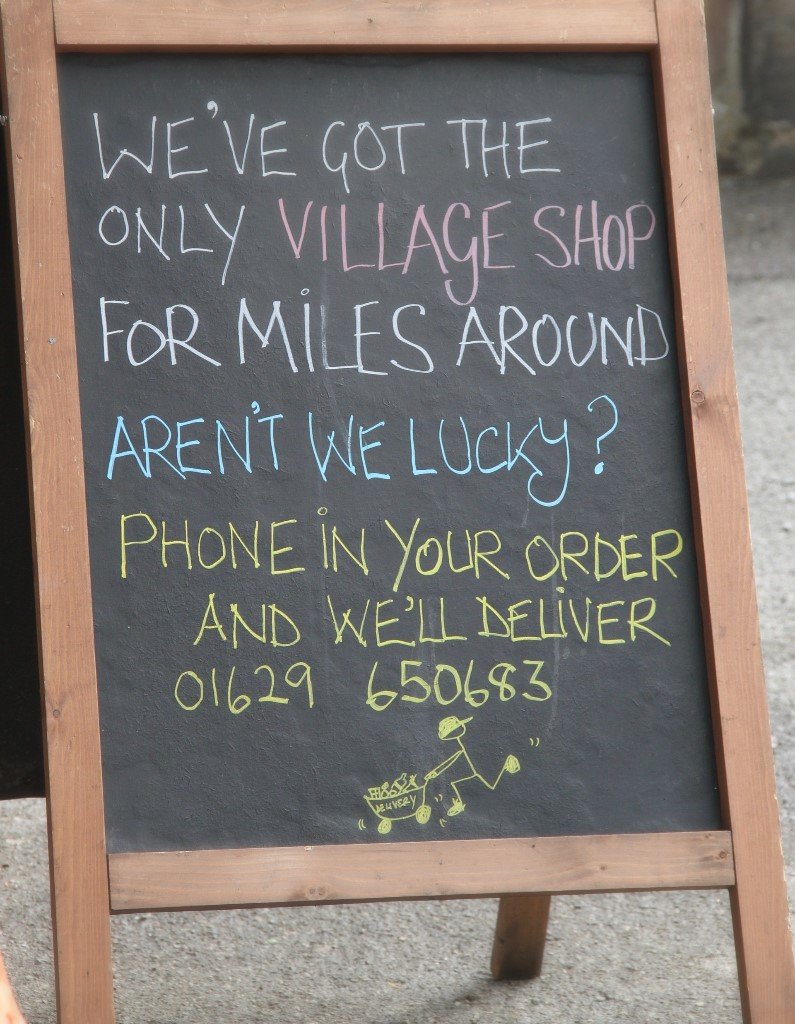 WE'VE GOT THE
ONLY VILLAGE SHOP
FOR MILES AROUND
AREN'T WE LUCKY?
PHONE IN YOUR ORDER
AND WE'LL DELIVER
01629 650683
DELIVERY